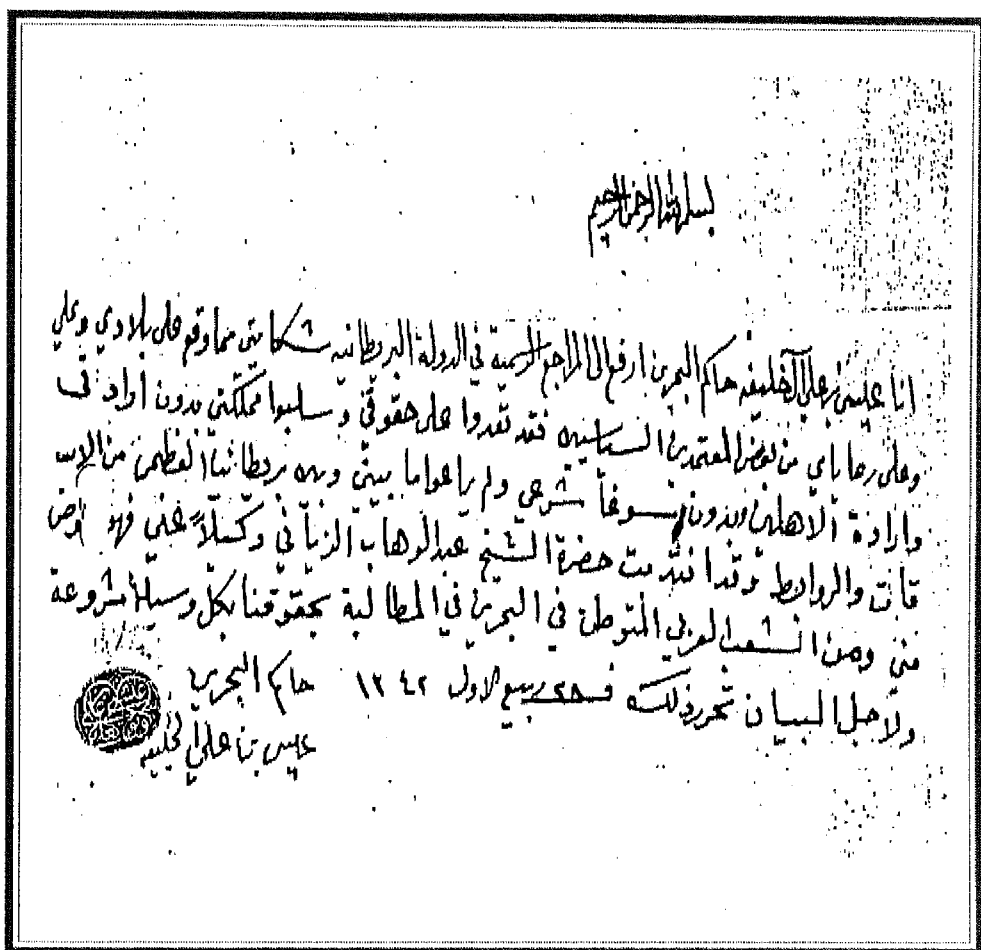 بسم الله الرحمن الرحيم
انا عيسى بن علي آل خليفه حاكم البحرين ارفع الى المراجع الرسمية في الدولة البريطانيه شكايتي مما وقع على بلادي وعلي
وعلى رعاياي من بعض المعتمدين السياسيين فقد تعدوا على حقوقي وسلبوا مملكتي بدون ارادتي
وارادة الاهلين وبدون مسوغاً شرعي ولم يراعوا ما بيني وبين بريطانيا العظمى من الاتفا
قات والروابط وقد انتدبت حضرة الشيخ عبدالوهاب الزياني وكيلاً عني فهو مفوض
مني ومن الشعب العربي المتوطن في البحرين في المطالبة بحقوقنا بكل وسيلة مشروعة
ولاجل البيان تحرر ذلك في ٢٨ ربيع الاول ١٣٤٢ حاكم البحرين
عيسى بن علي آل خليفه